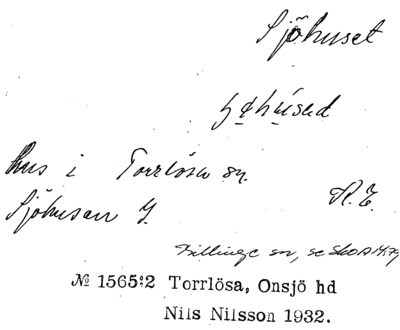 Sjöhuset
hus i Torrlösa sn.
Sjöhusen
Billinge sn, se
№ 1565:2 Torrlösa, Onsjö hd
Nils Nilsson 1932.